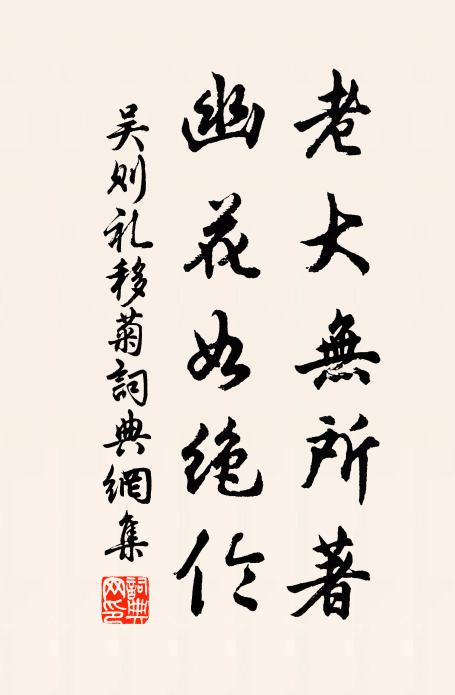 老大無所著
幽花如绝伶
吴则礼移菊詞典網集
詞典网印